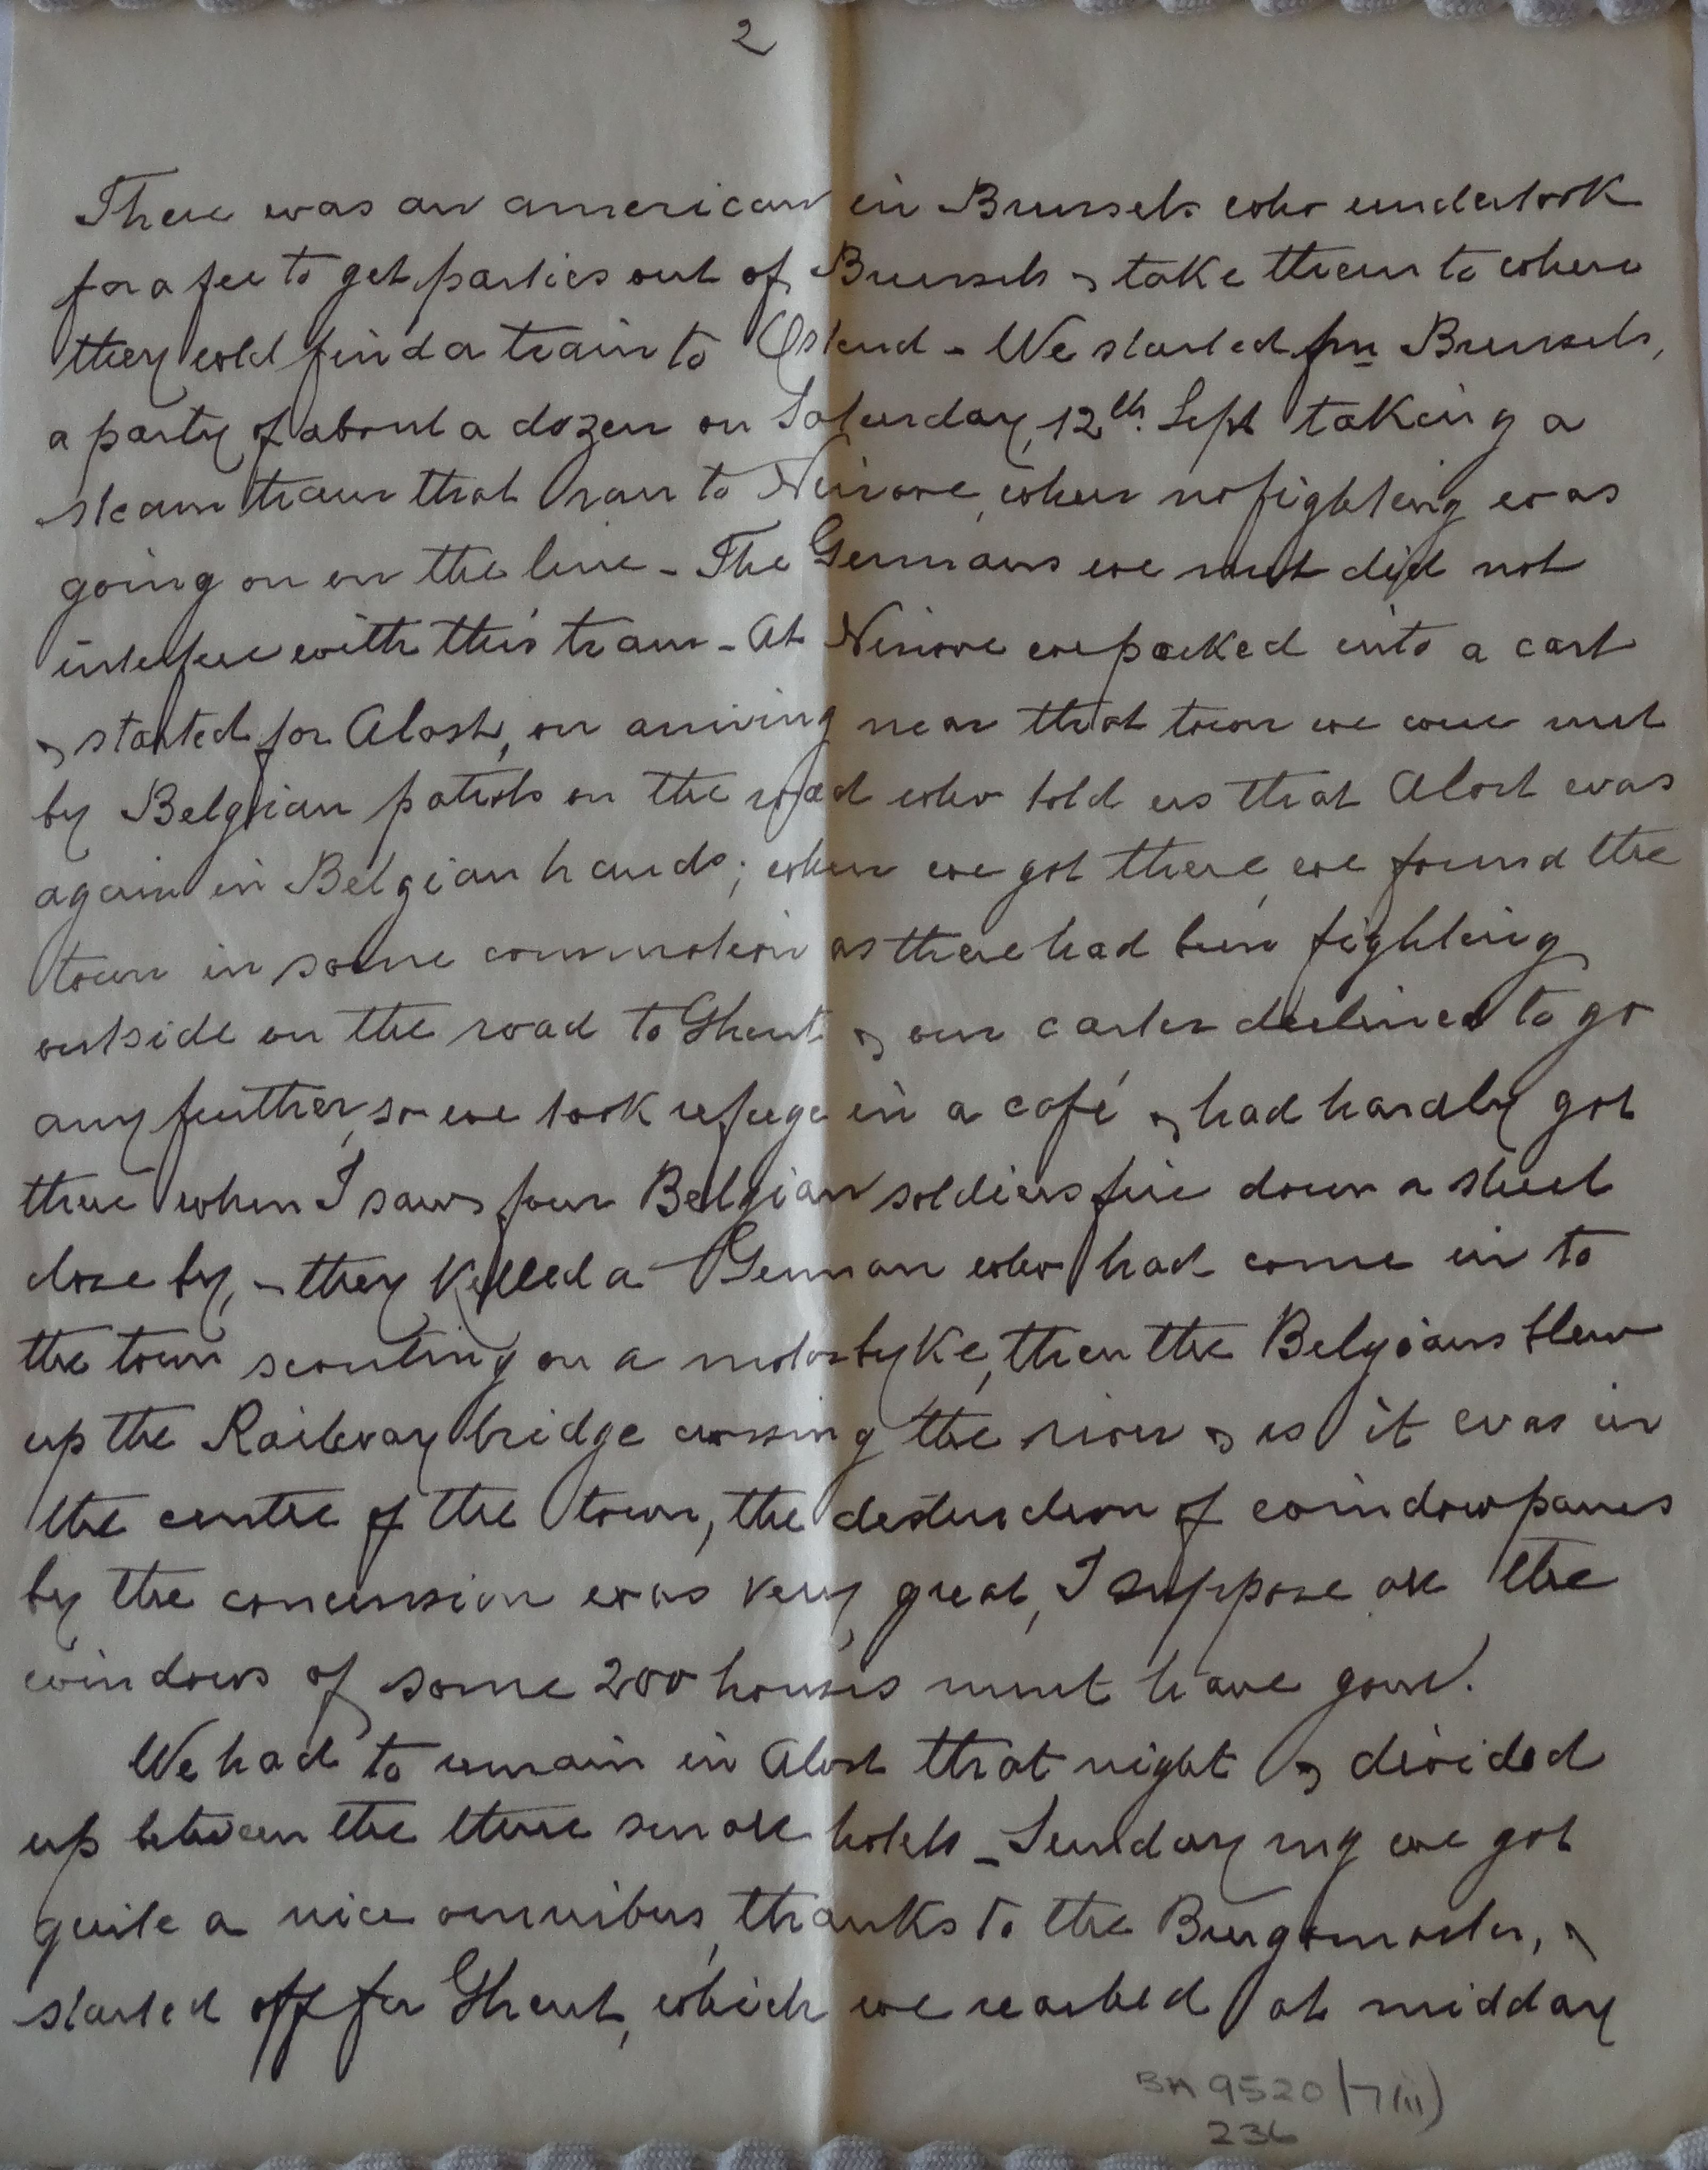 2
There was an american in Brussels who undertook
for a fee to get parties out of Brussels & take them to where
they cold find a train to Ostend - We started fm Brussels,
a party of about a dozen on Saturday, 12th. Sept taking a
steam tram that ran to Ninove, when no fighting was
going on on the line - The Germans we met did not
interfere with this tram - At Ninove we packed into a cart
& started for Alost, on arriving near that town we were met
by Belgian patrols on the road who told us that Alost was
again in Belgian hands; when we got there, we found the
town in some commotion as there had been fighting
outside on the road to Ghent & our carter declined to go
any further, so we took refuge in a café & had hardly got
there when I saw four Belgian soldiers fire down a street
close by, & they killed a German who had come in to
the town scouting on a motorbyke, then the Belgians blew
up the Railway bridge crossing the river & as it was in
the centre of the town, the destruction of windowpanes
by the concussion was very great, I suppose all the
windows of some 200 houses must have gone.
We had to remain in Alost that night & divided
up between the three small hotels - Sunday mg we got
quite a nice omnibus, thanks to the Burgomaster, &
started off for Ghent, which we reached at midday
BA 9520/7(ii)
236